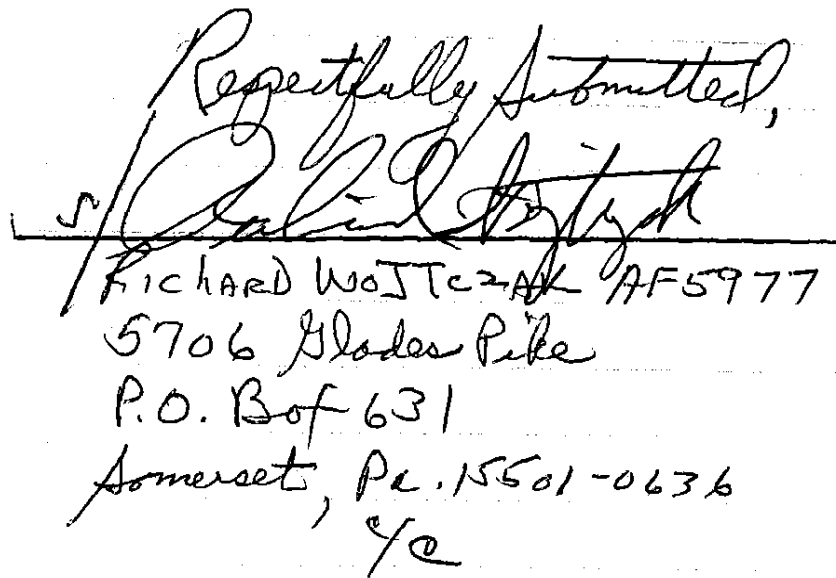 Respectfully Submitted,
s/
RICHARD WOJTCZAK AF5977
5706 Glades Pike
P.O. Box 631
Somerset, Pa. 15501-0636